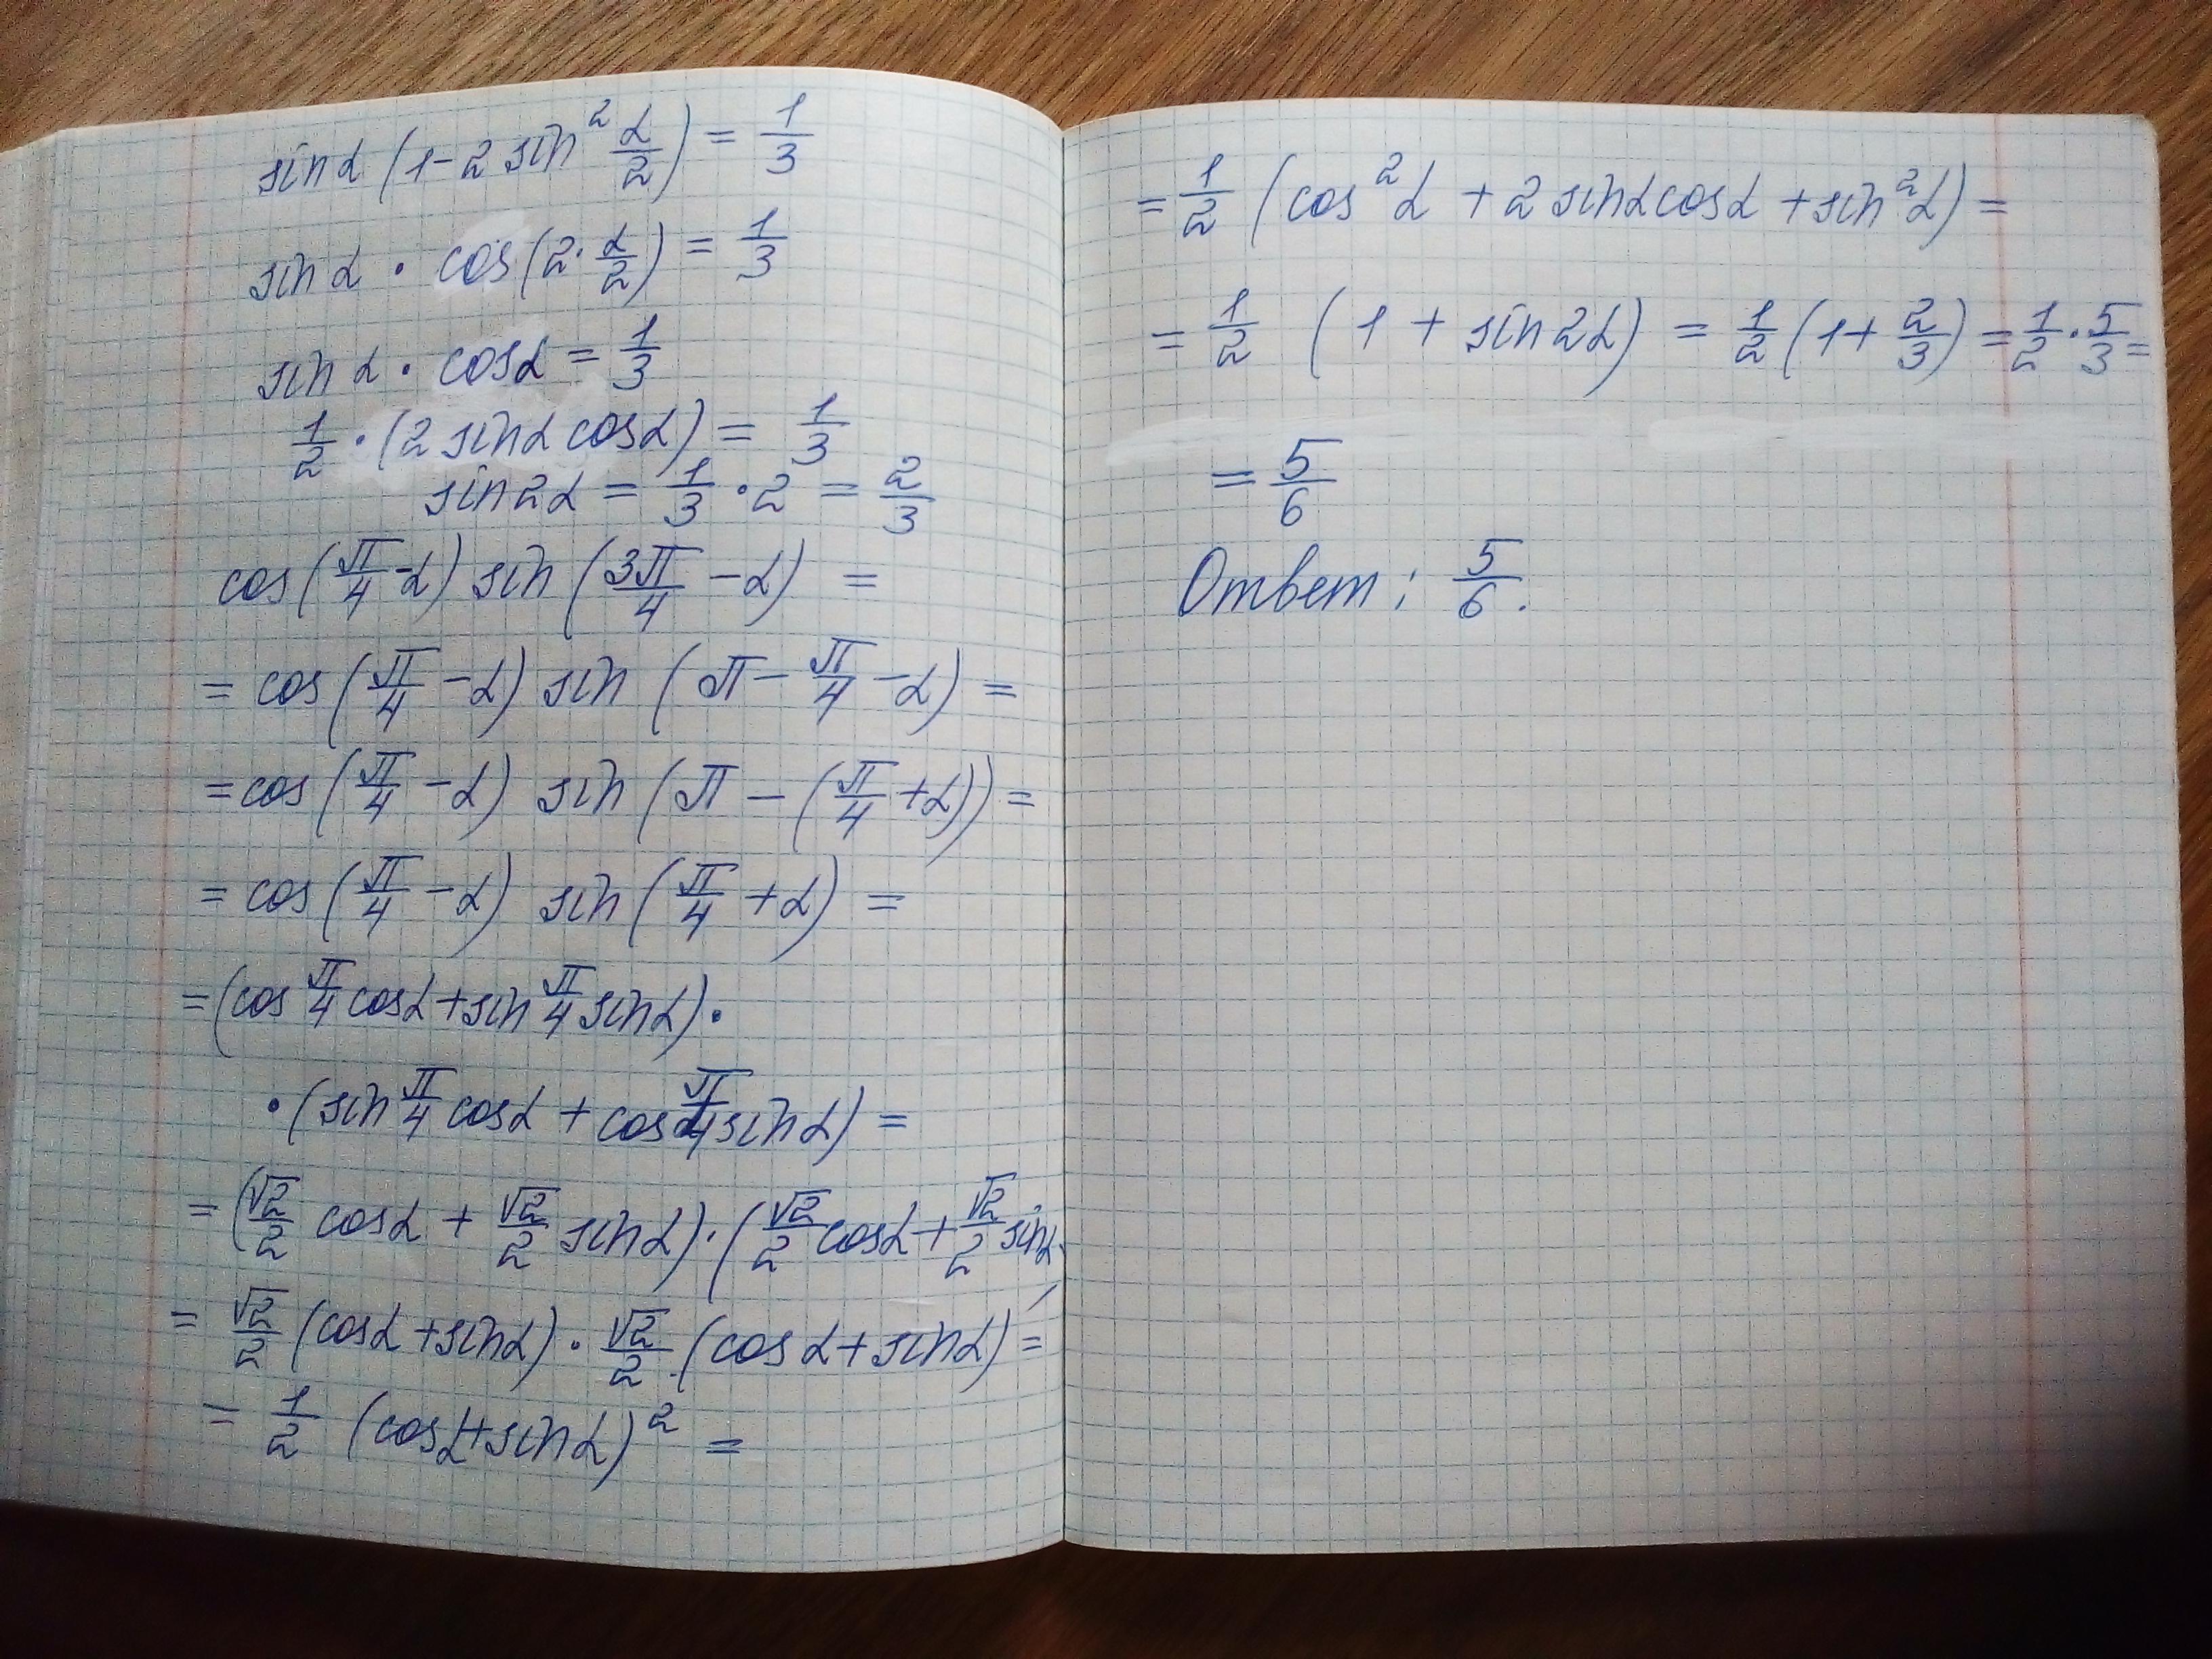 sin α (1 - 2 sin² α/2) = 1/3
sin α · cos(2 · α/2) = 1/3
sin α · cos α = 1/3
1/2 · (2 sin α cos α) = 1/3
sin 2α = 1/3 · 2 = 2/3
cos(π/4 - α) sin(3π/4 - α) =
= cos(π/4 - α) sin(π - π/4 - α) =
= cos(π/4 - α) sin(π - (π/4 + α)) =
= cos(π/4 - α) sin(π/4 + α) =
= (cos π/4 cos α + sin π/4 sin α) ·
· (sin π/4 cos α + cos π/4 sin α) =
= (√2/2 cos α + √2/2 sin α) · (√2/2 cos α + √2/2 sin α)
= √2/2 (cos α + sin α) · √2/2 (cos α + sin α) =
= 1/2 (cos α + sin α)² =
= 1/2 (cos² α + 2 sin α cos α + sin² α) =
= 1/2 (1 + sin 2α) = 1/2 (1 + 2/3) = 1/2 · 5/3 =
= 5/6
Ответ: 5/6.